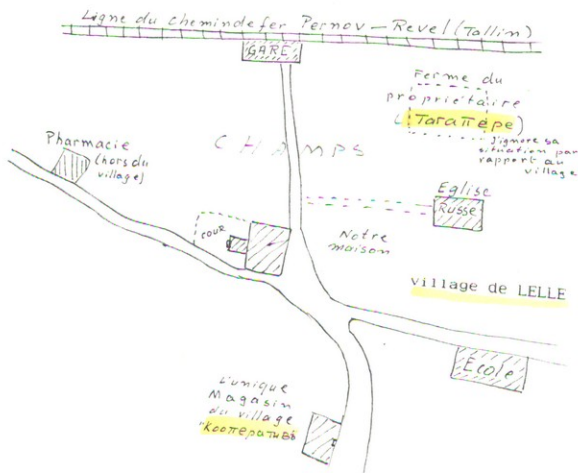 Ligne du chemindefer Pernov — Revel (Tallin)
GARE
Ferme du
propriétaire
(Taraпépe)
j'ignore sa
situation par
rapport au
village
CHAMPS
Pharmacie
(hors du
village)
Eglise
Russe
COUR
Notre
maison
village de LELLE
Ecole
L'unique
Magasin
du village
"Кооператив"